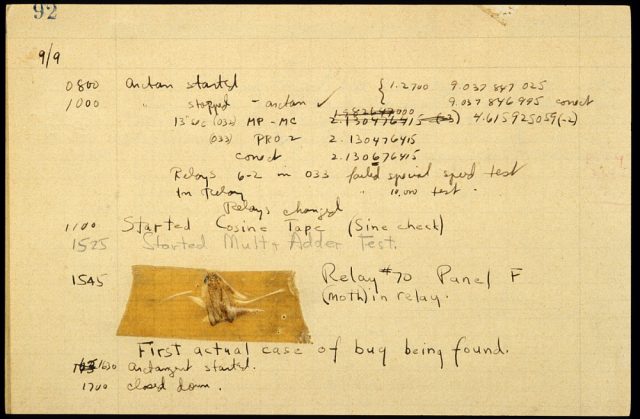 92
9/9
0800 Antan started { 1.2700 9.037 847 025
1000 " stopped - antan ✓ 9.037 846 995 conect
13" uc (032) MP - MC 2.130476415 (-3) 4.615925059(-2)
(033) PRO 2 2.130476415
conect 2.130676415
Relays 6-2 in 033 failed special speed test
In Relay " 10,000 test .
Relays changed
1100 Started Cosine Tape (Sine check)
1525 Started Mult + Adder Test.
1545 Relay #70 Panel F
(moth) in relay.
First actual case of bug being found.
1630 antangent started.
1700 closed down .